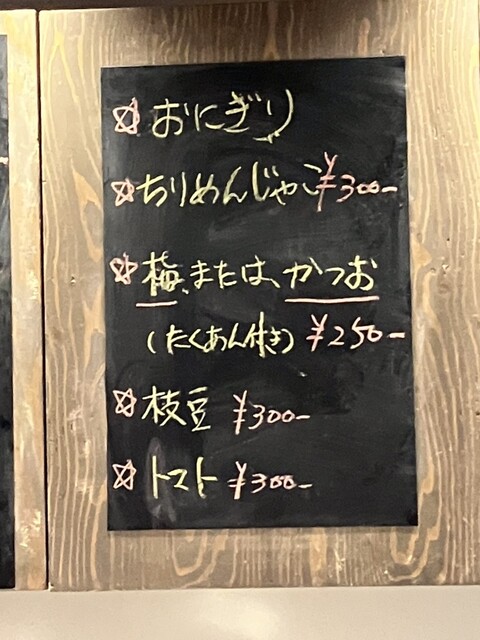 ☆おにぎり
☆ちりめんじゃこ¥300-
☆梅、または、かつお
(たくあん付き) ¥250-
☆枝豆 ¥300-
☆トマト ¥300-